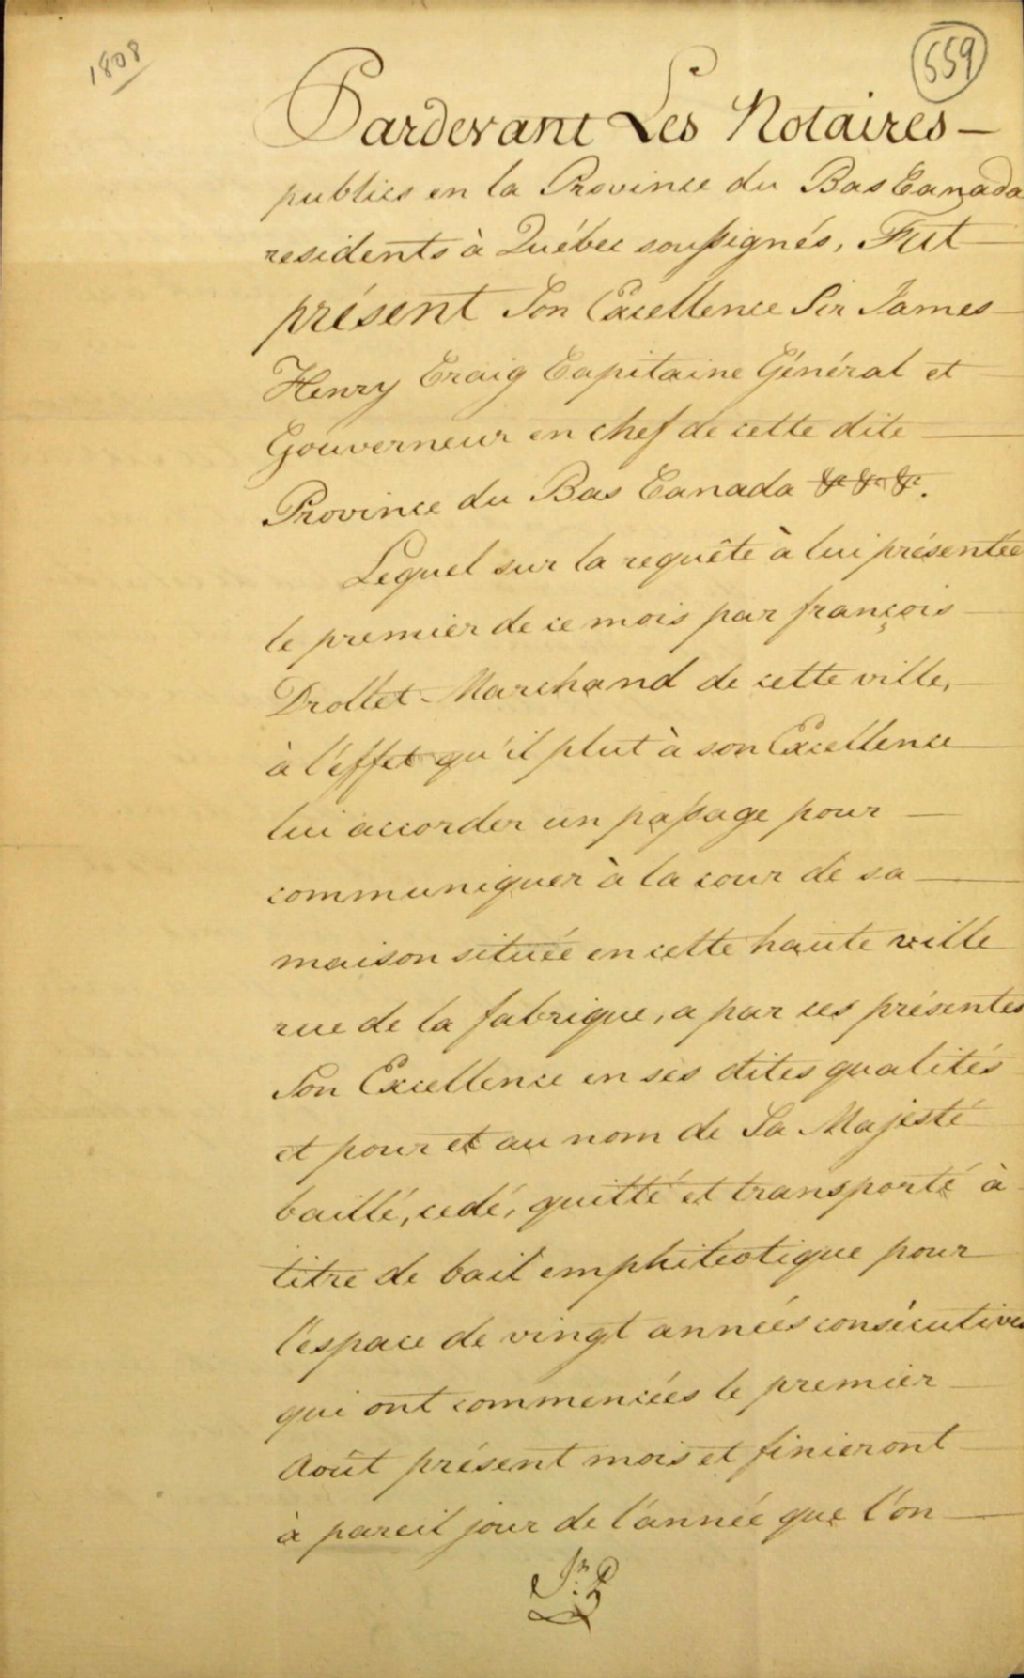 1808
559
Pardevant Les Notaires —
publics en la Province du Bas Canada
residents à Québec soussignés, Fut
présent Son Excellence Sir James
Henry Craig Capitaine Général et
Gouverneur en chef de cette dite
Province du Bas Canada &c &c &c.
Lequel sur la requête à lui présentée
le premier de ce mois par françois
Drollet Marchand de cette ville,
à l'éffet qu'il plut à son Excellence
lui accorder un passage pour
communiquer à la cour de sa
maison située en cette haute ville
rue de la fabrique, a par ces présentes
Son Excellence en ses dites qualités
et pour et au nom de Sa Majesté
baillé, cedé, quitté et transporté à
titre de bail emphiteotique pour
l'espace de vingt années consécutives
qui ont commencées le premier
Août présent mois et finieront
à pareil jour de l'année que l'on